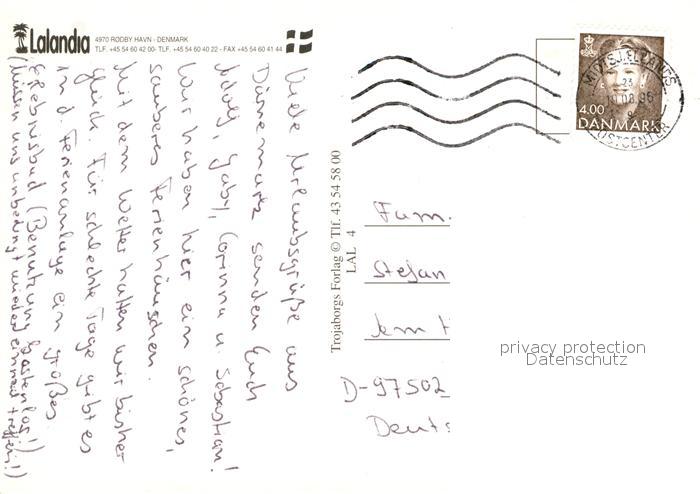 Lalandia
4970 RØDBY HAVN - DENMARK
TLF. +45 54 60 42 00- TLF. +45 54 60 40 22 - FAX +45 54 60 41 44
Viele Urlaubsgrüße aus
Dänemark senden Euch
Adolf, Gaby, Corinna u. Sebastian!
Wir haben hier ein schönes,
sauberes Ferienhäuschen.
Mit dem Wetter hatten wir bisher
Glück. Für schlechte Tage gibt es
in d. Ferienanlage ein großes
Erlebnisbad (Benutzung kostenlos!)
(Müssen uns unbedingt wieder einmal treffen!)
Trojaborgs Forlag © Tlf. 43 54 58 00
LAL 4
MIDTSJÆLLANDS
POSTCENTER
4.00
DANMARK
Fam.
Stefan
D-97502
Deuts
privacy protection
Datenschutz